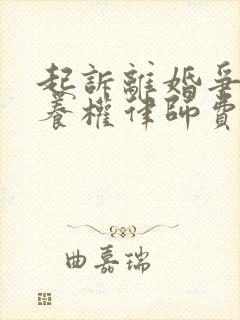 起訴離婚爭
養權律師費
曲嘉瑞